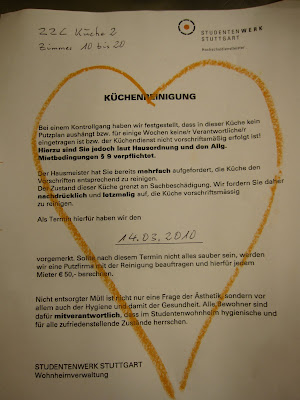 22L Küche 2
Zimmer 10 bis 20
STUDENTENWERK
STUTTGART
KÜCHENREINIGUNG
Bei einem Kontrollgang haben wir festgestellt, dass in dieser Küche kein
Putzplan aushängt bzw. für einige Wochen keine/r Verantwortliche/r
eingetragen ist bzw. der Küchendienst nicht vorschriftsmäßig erfolgt ist!
Hierzu sind Sie jedoch laut Hausordnung und den Allg.
Mietbedingungen § 9 verpflichtet.
Der Hausmeister hat Sie bereits mehrfach aufgefordert, die Küche den
Vorschriften entsprechend zu reinigen.
Der Zustand dieser Küche grenzt an Sachbeschädigung. Wir fordern Sie daher
nachdrücklich und letzmalig auf, die Küche vorschriftsmässig
zu reinigen.
Als Termin hierfür haben wir den
14.03.2010
vorgemerkt. Sollte nach diesem Termin nicht alles sauber sein, werden
wir eine Putzfirma mit der Reinigung beauftragen und hierfür jedem
Mieter € 50,- berechnen.
Nicht entsorgter Müll ist nicht nur eine Frage der Ästhetik, sondern vor
allem auch der Hygiene und damit der Gesundheit. Alle Bewohner sind
dafür mitverantwortlich, dass im Studentenwohnheim hygienische und
für alle zufriedenstellende Zustände herrschen.
STUDENTENWERK STUTTGART
Wohnheimverwaltung